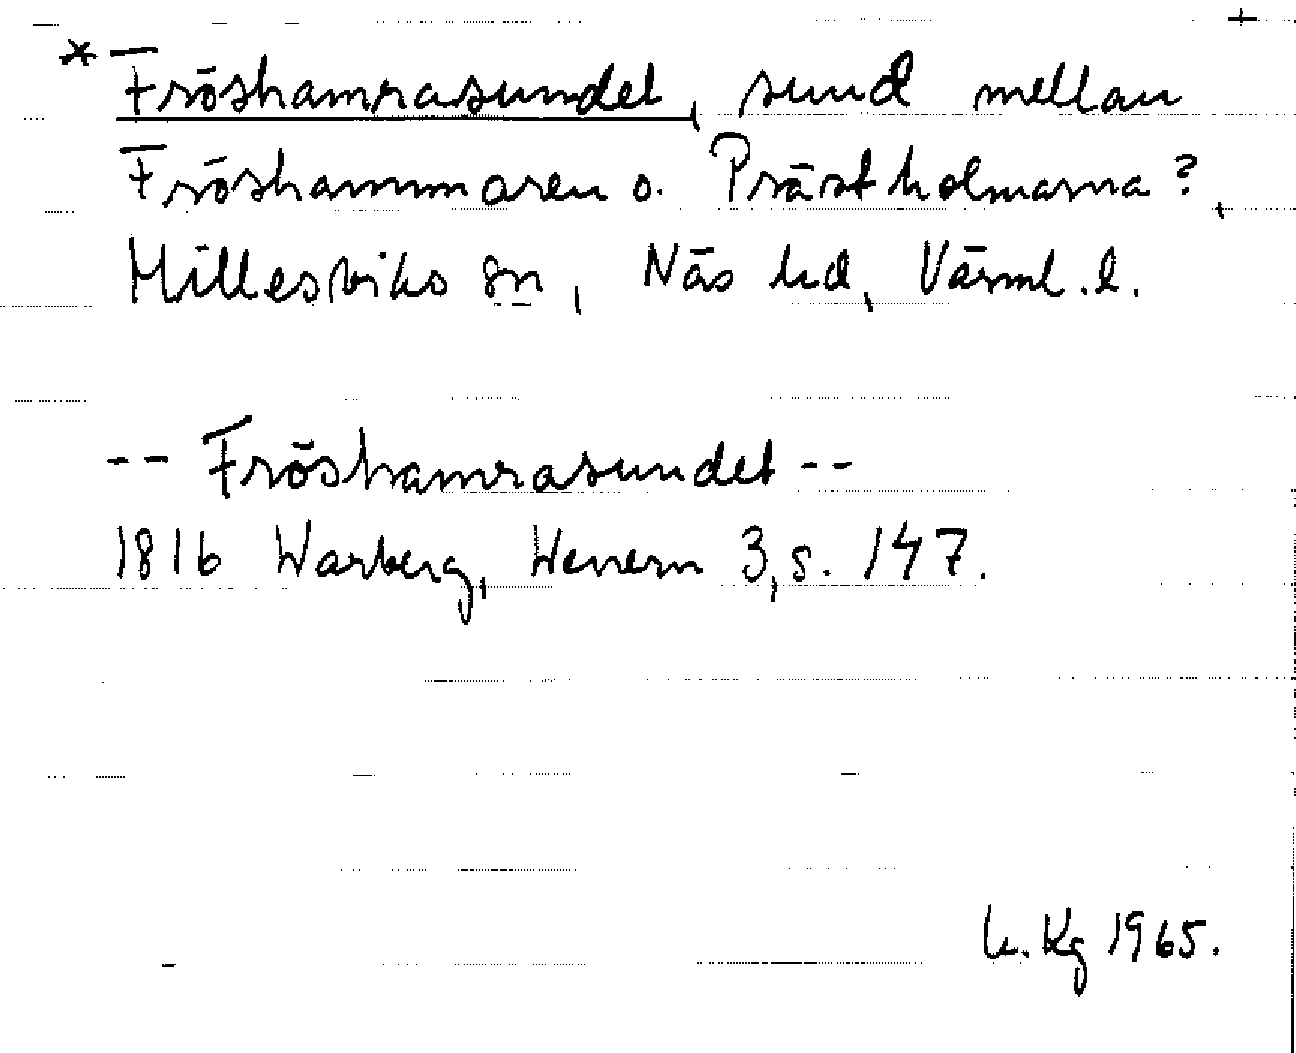 * Fröshamrasundet, sund mellan
Fröshammaren o. Prästholmarna?,
Millesviks sn, Näs hd, Värml. l.
-- Fröshamrasundet --
1816 Warberg, Wenern 3, s. 147.
Kg 1965.